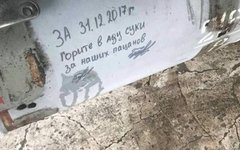 ЗА 31.12.2017г
горите в аду суки
за наших пацанов